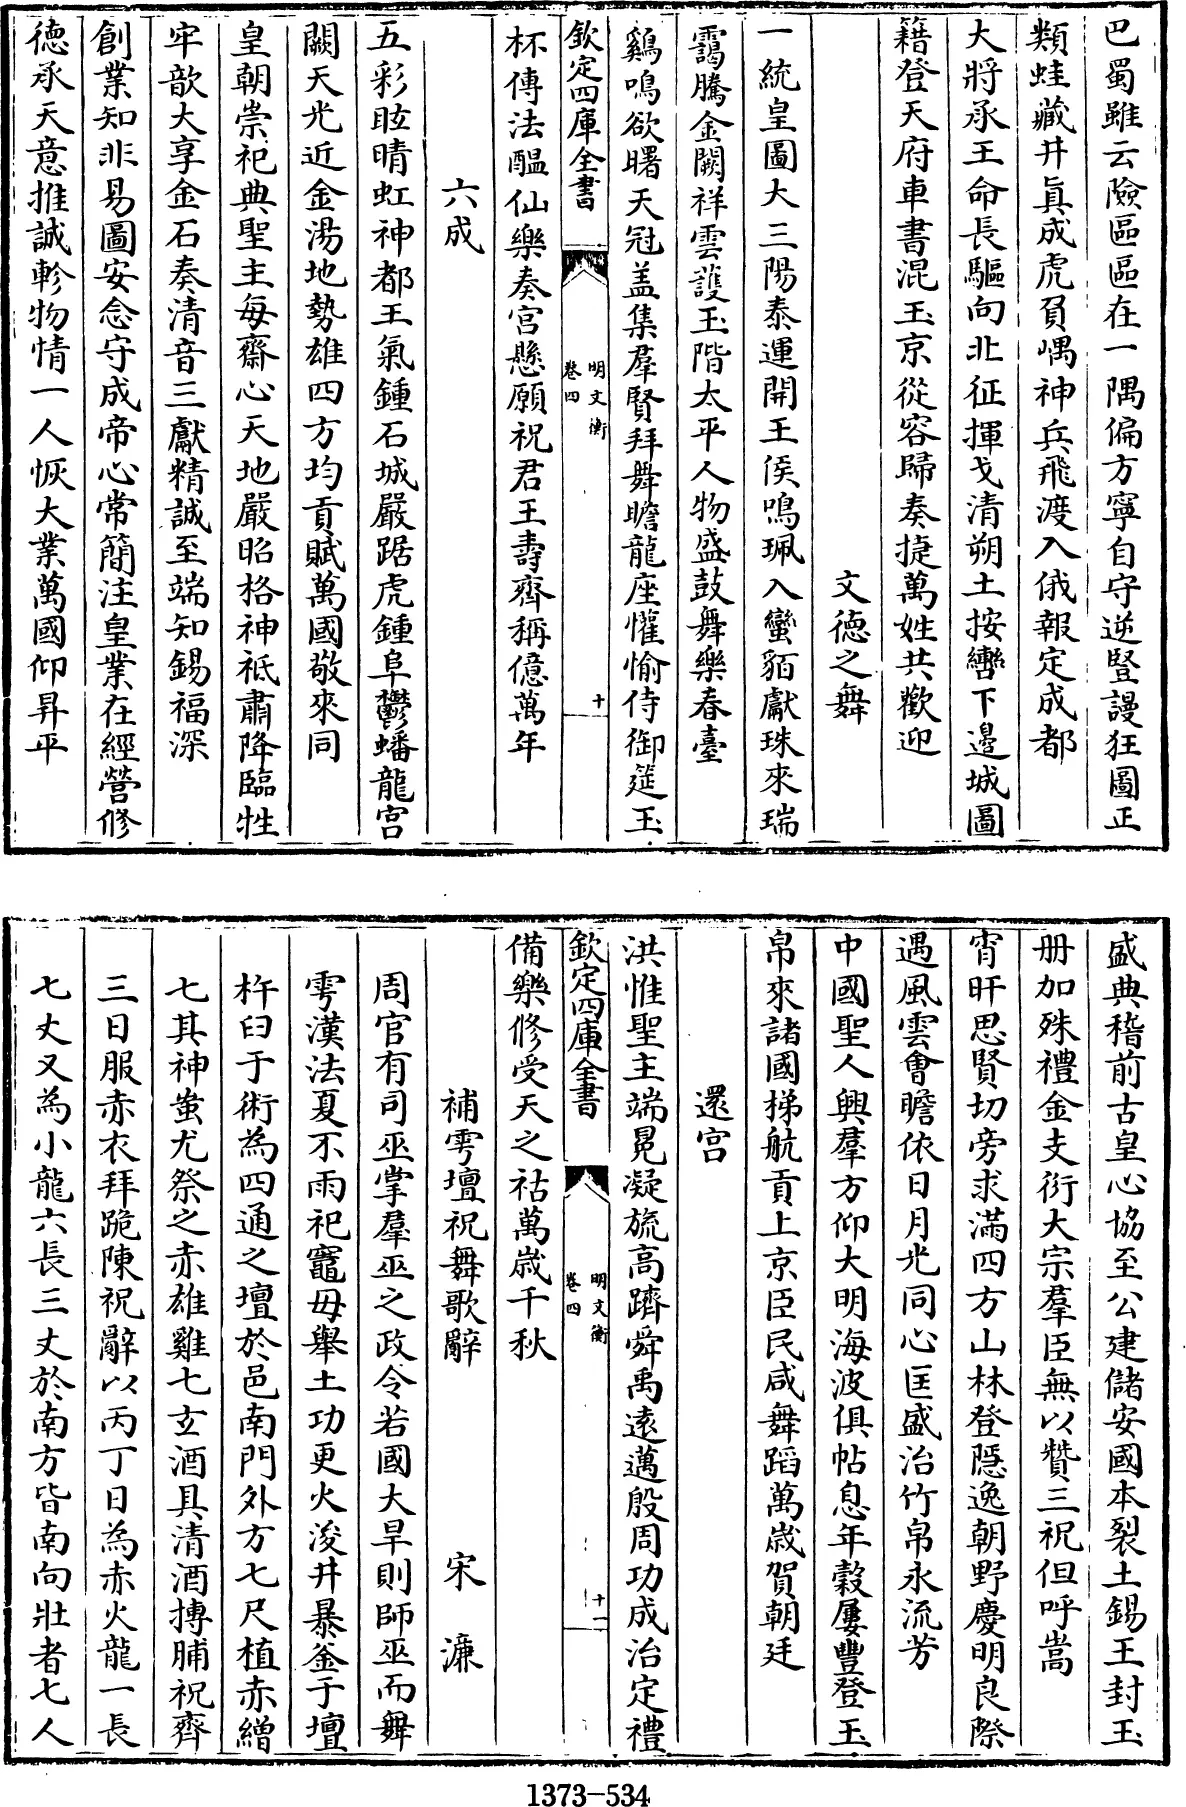 巴蜀雖云險區區在一隅偏方寧自守逆豎謾狂圖正
類蛙藏井真成虎負嵎神兵飛渡入俄報定成都
大將承王命長驅向北征揮戈清朔土按轡下邊城圖
籍登天府車書混玉京從容歸奏捷萬姓共歡迎
文德之舞
一統皇圖大三陽泰運開王侯鳴珮入蠻貊獻珠來瑞
靄騰金闕祥雲護玉階太平人物盛鼓舞樂春臺
鷄鳴欲曙天冠盖集羣賢拜舞瞻龍座懽愉侍御筵玉
欽定四庫全書
明文衡
卷四
十
杯傳法醞仙樂奏宮懸願祝君王壽齊稱億萬年
六成
五彩眩晴虹神都王氣鍾石城嚴踞虎鍾阜鬱蟠龍宮
闕天光近金湯地勢雄四方均貢賦萬國敬來同
皇朝崇祀典聖主每齋心天地嚴昭格神祇肅降臨牲
牢歆大享金石奏清音三獻精誠至端知錫福深
創業知非易圖安念守成帝心常簡注皇業在經營修
德承天意推誠軫物情一人恢大業萬國仰昇平
盛典稽前古皇心協至公建儲安國本裂土錫王封玉
冊加殊禮金支衍大宗羣臣無以贊三祝但呼嵩
宵旰思賢切旁求滿四方山林登隱逸朝野慶明良際
遇風雲會瞻依日月光同心匡盛治竹帛永流芳
中國聖人興羣方仰大明海波俱帖息年穀屢豐登玉
帛來諸國梯航貢上京臣民咸舞蹈萬歲賀朝廷
還宮
洪惟聖主端冕凝旒高躋舜禹遠邁殷周功成治定禮
欽定四庫全書
明文衡
卷四
十一
備樂修受天之祜萬歲千秋
補雩壇祝舞歌辭 宋濂
周官有司巫掌羣巫之政令若國大旱則師巫而舞
雩漢法夏不雨祀竈毋舉土功更火浚井暴釜于壇
杵臼于術為四通之壇於邑南門外方七尺植赤繒
七其神蚩尤祭之赤雄雞七玄酒具清酒摶脯祝齊
三日服赤衣拜跪陳祝辭以丙丁日為赤火龍一長
七丈又為小龍六長三丈於南方皆南向壯者七人
1373-534